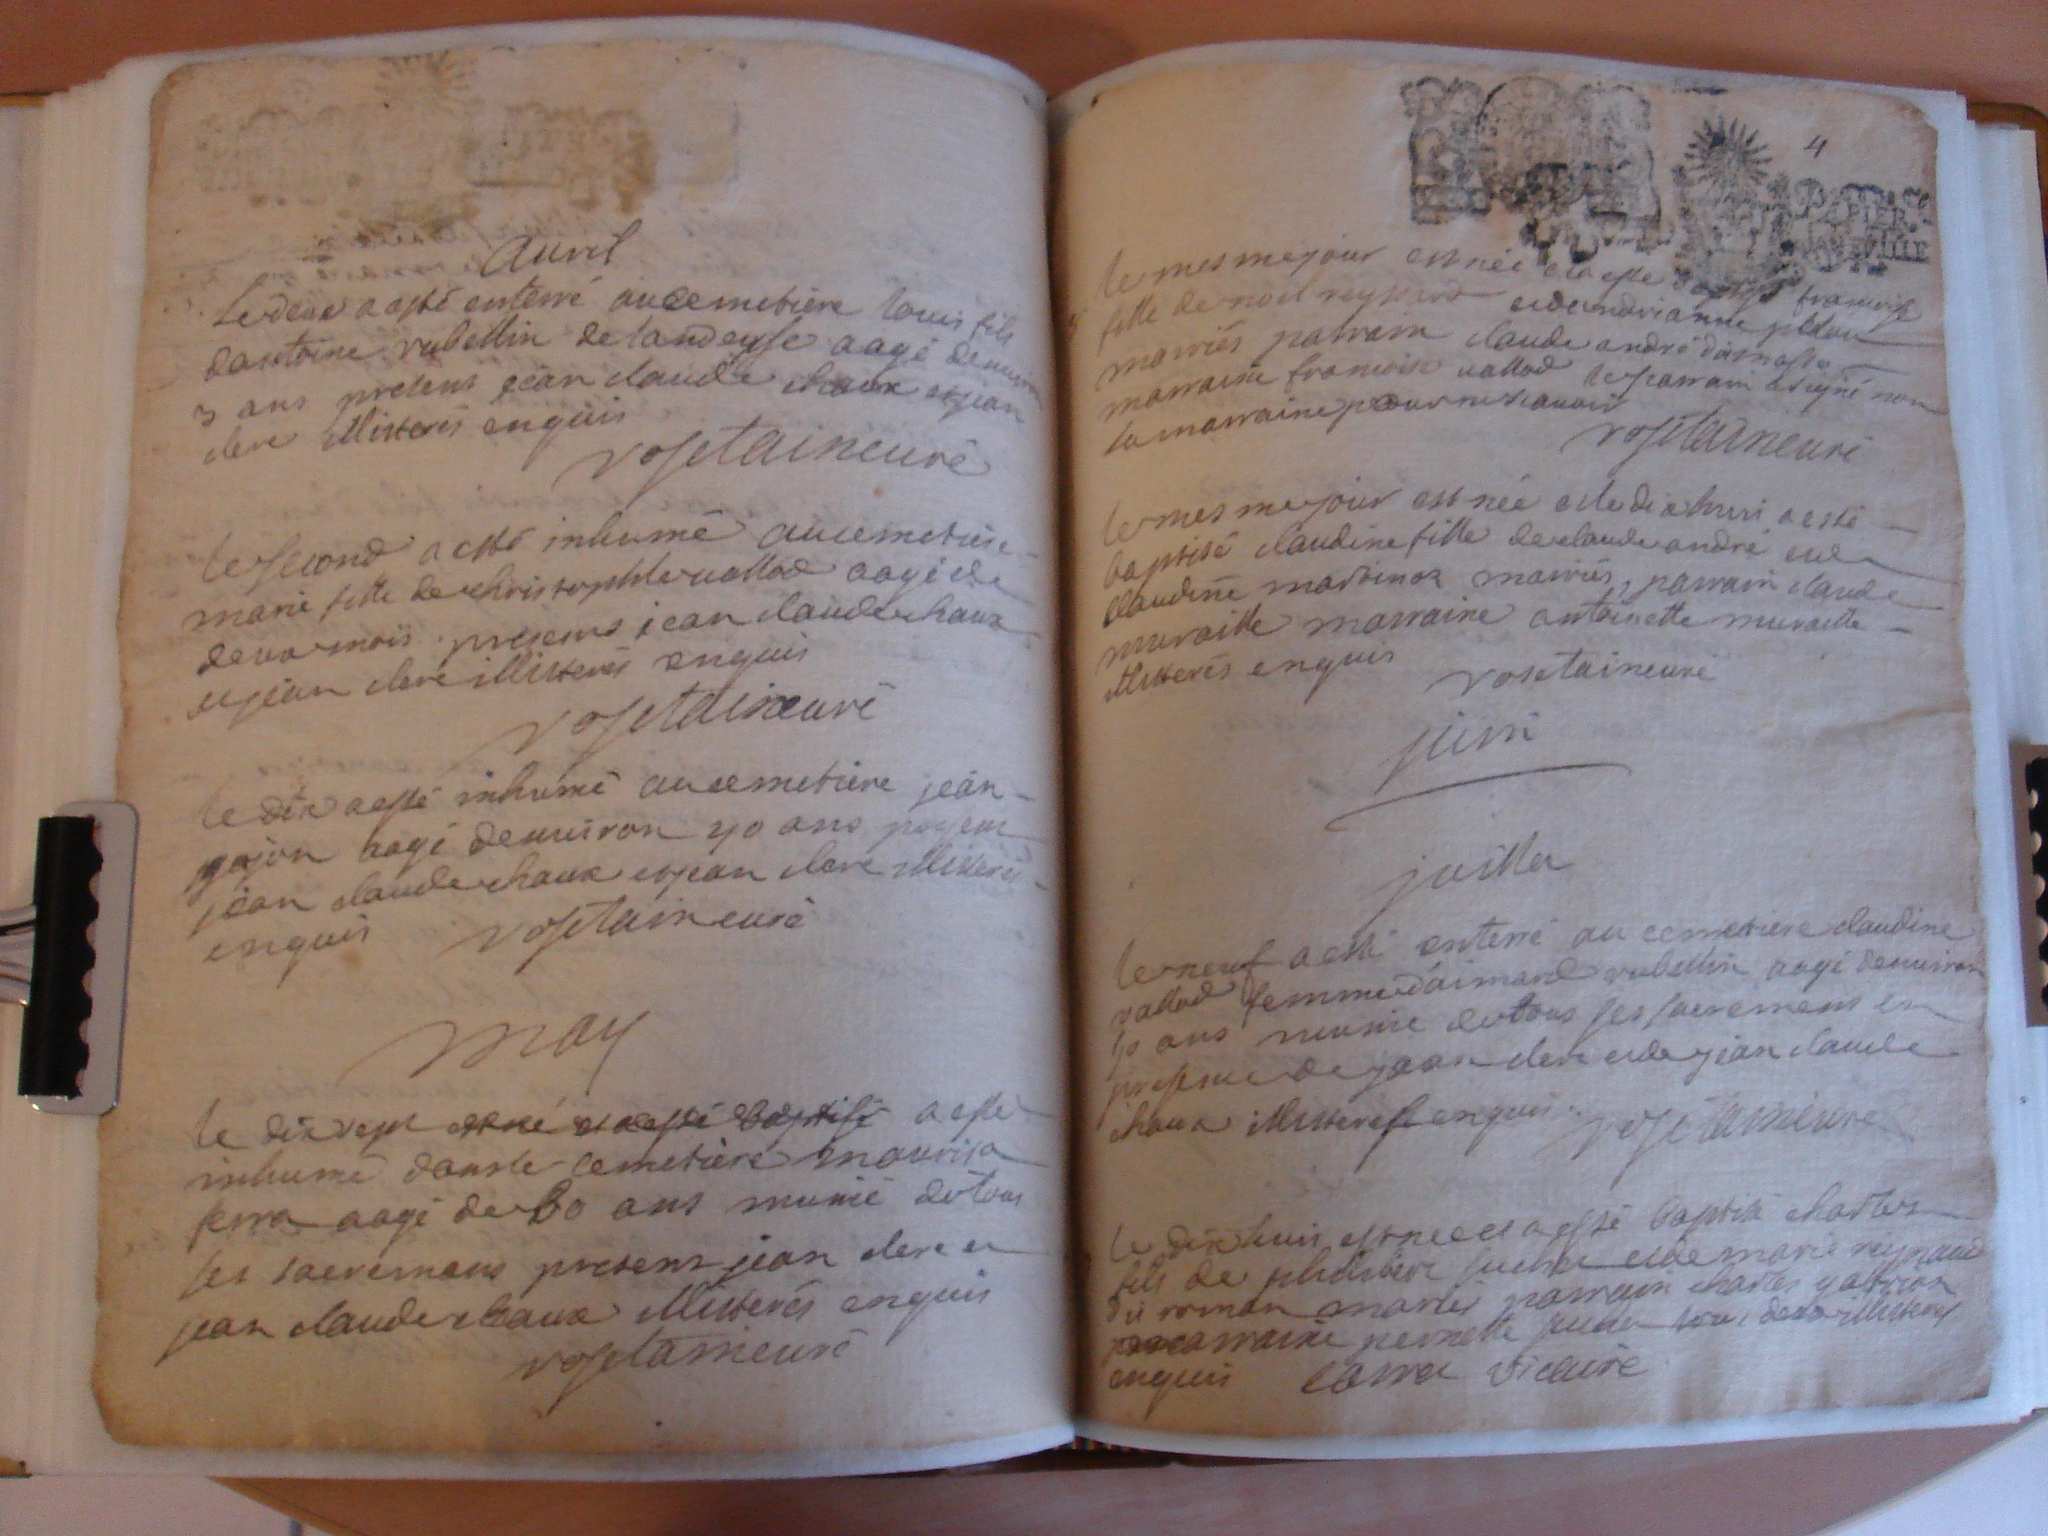 Auril
Le deux a esté enterré au cemetiere louis fils
dantoine rubellin de landeysse aagé denuiron
3 ans presens jean claude chaux et jean
clere illitterés enquis
vosetaineuré
le second a esté inhumé au cemetiere
marie fille de christophle vallod aagée de
deux mois presens jean claude chaux
et jean clere illitterés enquis
vosetain curé
le dix a esté inhumé au cemetiere jean
gojon aagé denuiron 40 ans presens
jean claude chaux et jean clere illitterés
enquis vosetain curé
may
le dix sept a esté
inhumé dans le cemetiere
aagé de 80 ans munié de tous
ses sacremens presens jean clere et
jean claude chaux illitterés enquis
vosetain curé
4
le mesme jour est née et a esté baptisé françoise
fille de noel reynard et de marianne
mariés parrain claude andré
marraine françoise vallod le parrain a signé non
la marraine pour ne scauoir
vosetain curé
le mesme jour est née et le dixhuit a esté
baptisé claudine fille de claude andré et de
claudine mariés, parrain claude
muraille marraine antoinette muraille
illitterés enquis
vosetain curé
juin
juillet
le neuf a esté enterré au cemetiere claudine
vallod femme daimard rubellin aagé denuiron
ans munie de tous ses sacremens en
presence de jean clere et de jean claude
chaux illitterés enquis. vosetain curé
le dix huit est né et a esté baptisé charles
fils de philibert et de marie reynaud
dit roman mariés parrain charles
marraine pernette tous deux illitterés
enquis vicaire